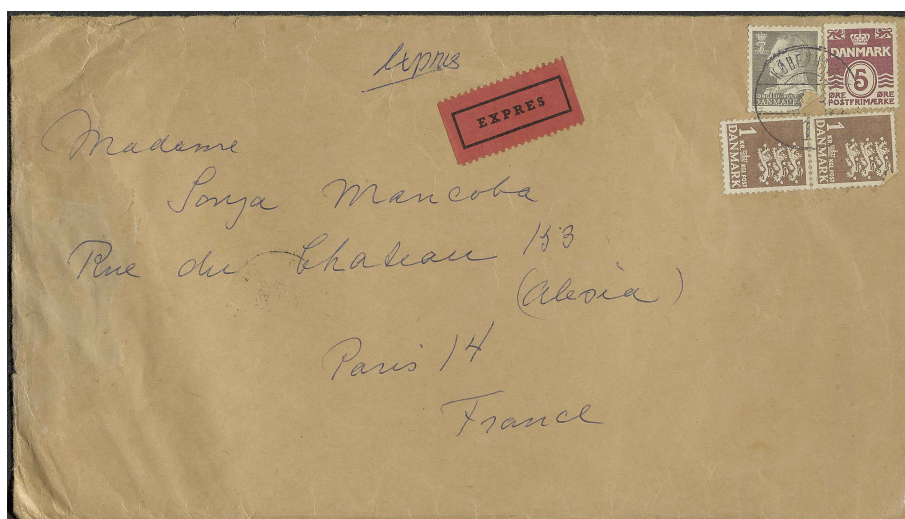 Expres
EXPRES
DANMARK
5
ØRE ØRE
POSTFRIMÆRKE
DANMARK
1
DANMARK
1
DANMARK
Madame
Sonja Mancoba
Rue du Chateau 153
(Alesia)
Paris 14
France